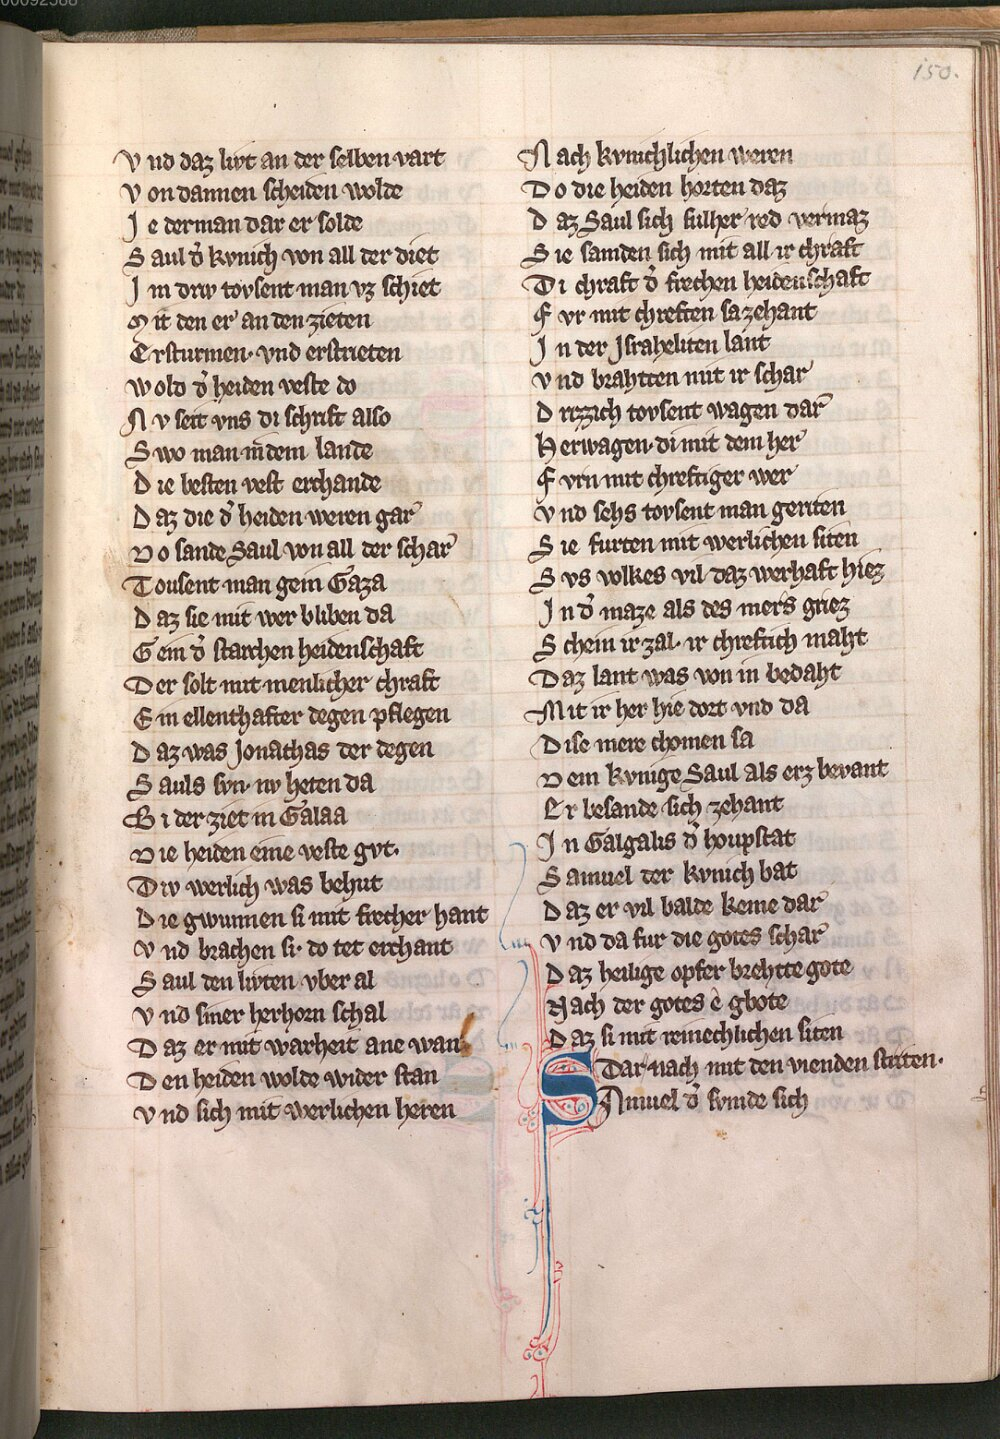 00092588
150.
Vnd daz livt an der selben vart
Von dannen scheiden wolde
Jederman dar er solde
Saul d̾ kvnich von all der diet
Jm drw tovsent man vz schiet
Mit den er an den zieten
Ersturmen· vnd erstrieten
Wold d̾ heiden veste do
Nv seit vns di schrift also
Swo man in dem lande
Die besten vest erchande
Daz die d̾ heiden weren gar
Do sande Saul von all der schar
Tousent man gein Gaza
Daz sie mit wer bliben da
Gein d̾ starchen heidenschaft
Der solt mit menlicher chraft
Ein ellenthafter degen pflegen
Daz was Jonathas der degen
Sauls svn· nv heten da
Bi der ziet in Galaa
Die heiden eine veste gvt·
Div werlich was behut
Die gwunnen si mit frecher hant
Vnd brachen si· do tet erchant
Saul den livten vber al
Vnd siner herhorn schal
Daz er mit warheit ane wan
Den heiden wolde wider stan
Vnd sich mit werlichen heren
Nach kvnichlichen weren
Do die heiden horten daz
Daz Saul sich sulher red vermaz
Sie samden sich mit all ir chraft
Di chraft d̾ frechen heidenschaft
Fvr mit chreften sazehant
Jn der Jsraheliten lant
Vnd brahtten mit ir schar
Drizzich tovsent wagen dar
Herwagen· di mit dem her
Fvrn mit chreftiger wer
Vnd sehs tovsent man geriten
Sie furten mit werlichen siten
Svs volkes vil daz werhaft hiez
Jn d̾ maze als des mers griez
Schein ir zal· ir chreftich maht
Daz lant was von in bedaht
Mit ir her hie dort vnd da
Dise mere chomen sa
Dem kvnige Saul als erz bevant
Er besande sich zehant
Jn Galgalis d̾ houpstat
Samuel der kvnich bat
Daz er vil balde keme dar
Vnd da fur die gotes schar
Daz heilige opfer brehtte gote
Nach der gotes ê gbote
Daz si mit remechlichen siten
Dar nach mit den vienden striten·
SAmuel d̾ svmde sich